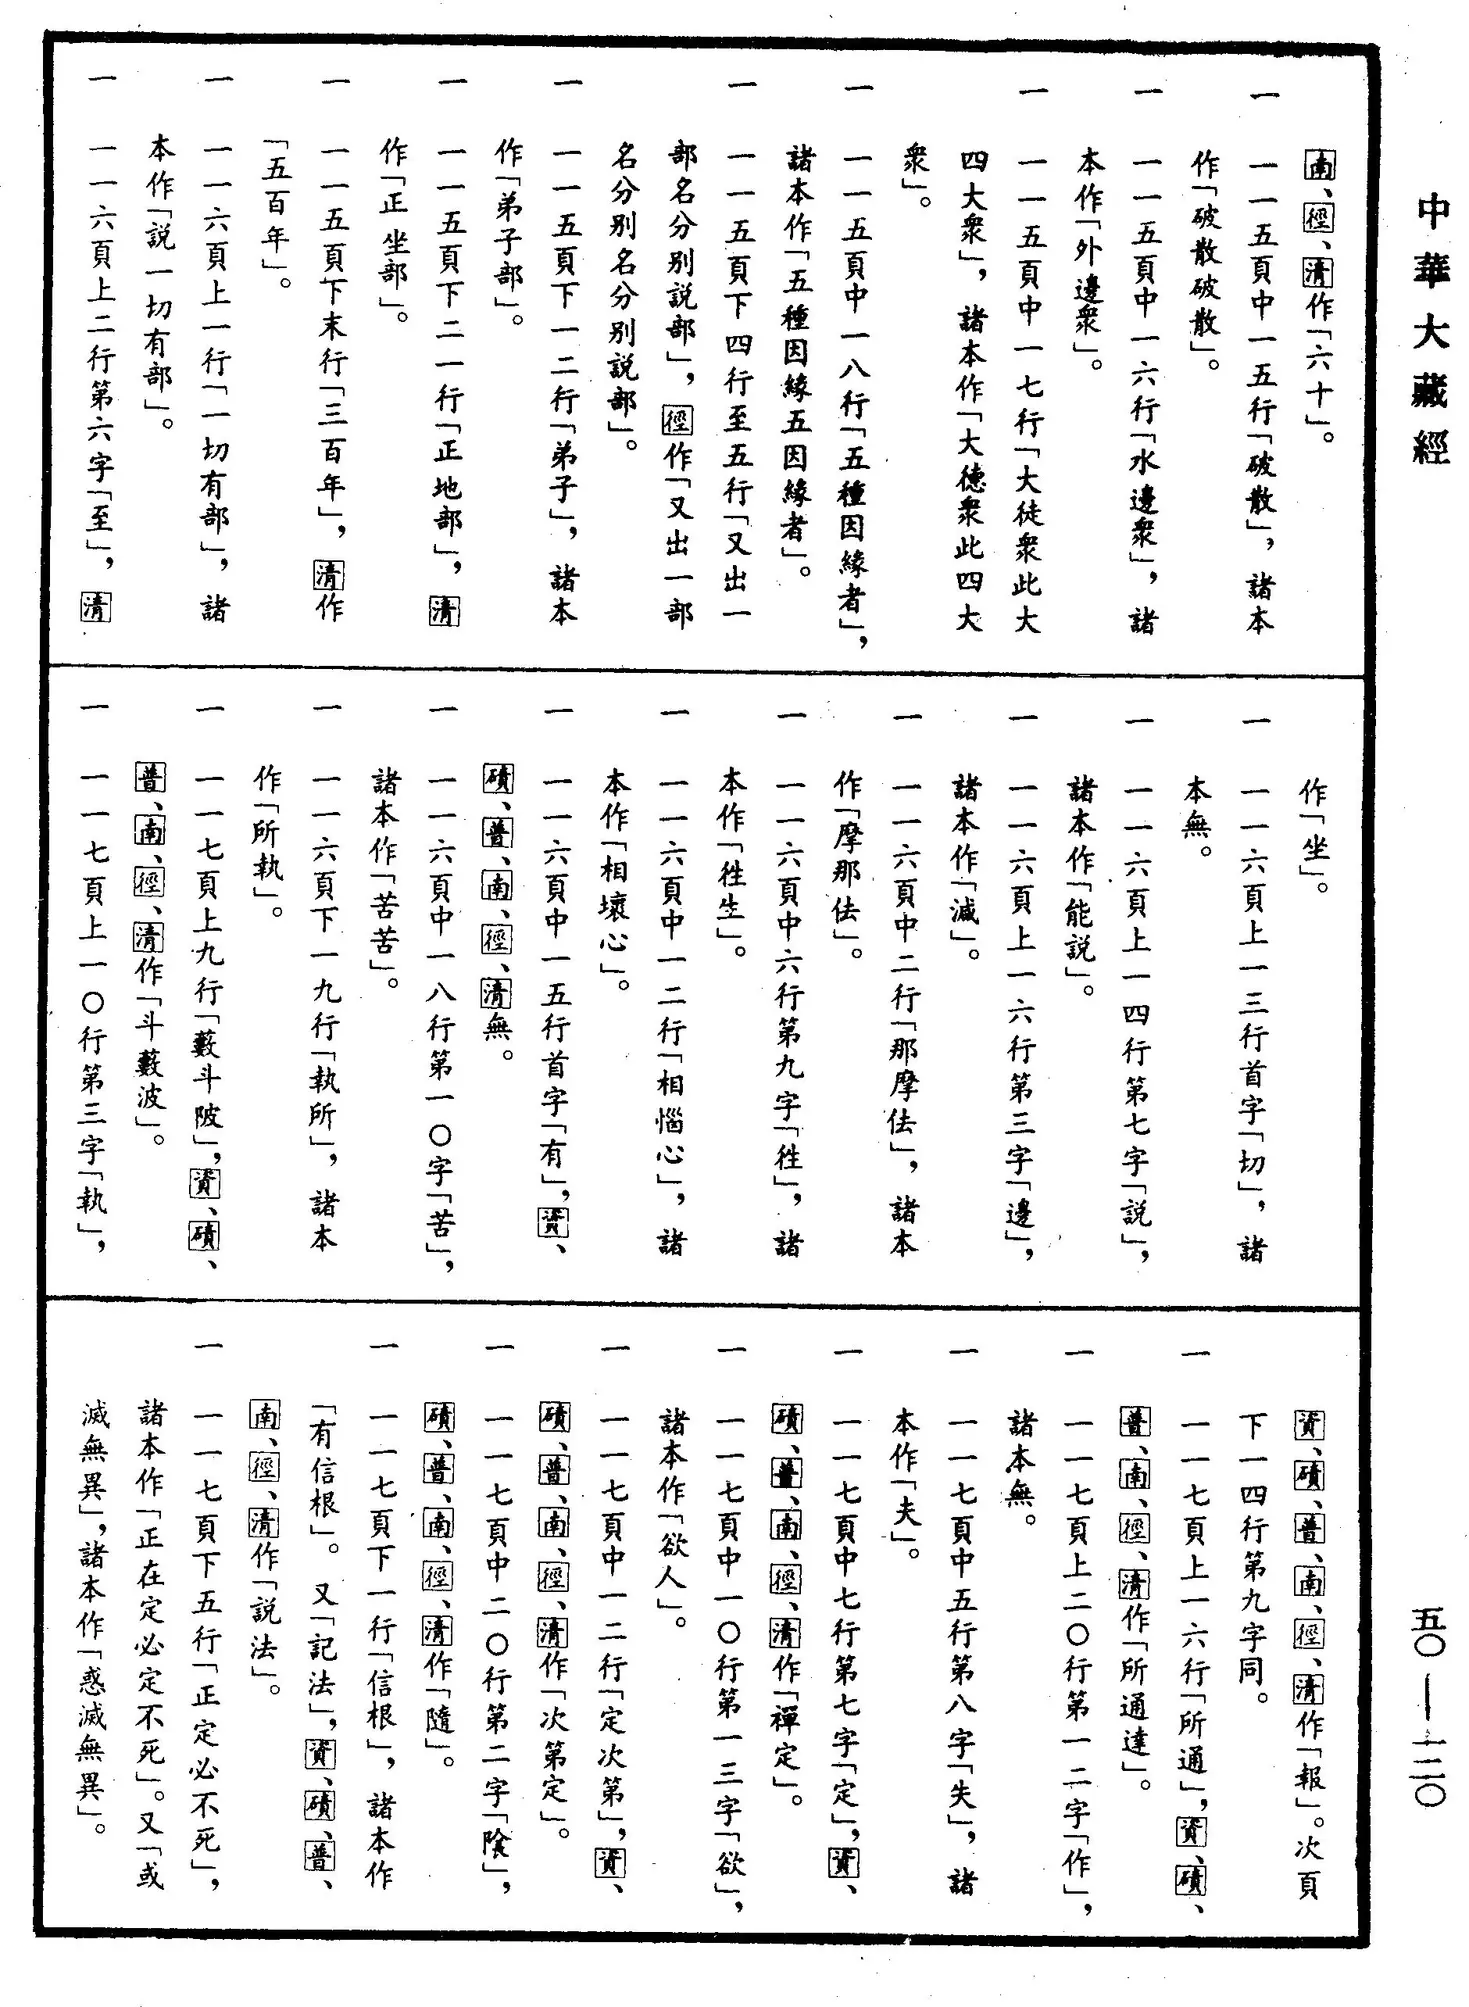 中華大藏經
五〇——一二〇
南、徑、清作「六十」。
一　一一五頁中一五行「破散」，諸本
作「破散破散」。
一　一一五頁中一六行「水邊衆」，諸
本作「外邊衆」。
一　一一五頁中一七行「大徒衆此大
四大衆」，諸本作「大德衆此四大
衆」。
一　一一五頁中一八行「五種因緣者」，
諸本作「五種因緣五因緣者」。
一　一一五頁下四行至五行「又出一
部名分别説部」，徑作「又出一部
名分别名分别説部」。
一　一一五頁下一二行「弟子」，諸本
作「弟子部」。
一　一一五頁下二一行「正地部」，清
作「正坐部」。
一　一一五頁下末行「三百年」，清作
「五百年」。
一　一一六頁上一行「一切有部」，諸
本作「説一切有部」。
一　一一六頁上二行第六字「至」，清
作「坐」。
一　一一六頁上一三行首字「切」，諸
本無。
一　一一六頁上一四行第七字「説」，
諸本作「能説」。
一　一一六頁上一六行第三字「邊」，
諸本作「減」。
一　一一六頁中二行「那摩佉」，諸本
作「摩那佉」。
一　一一六頁中六行第九字「徃」，諸
本作「徃生」。
一　一一六頁中一二行「相惱心」，諸
本作「相壞心」。
一　一一六頁中一五行首字「有」，資、
磧、普、南、徑、清無。
一　一一六頁中一八行第一〇字「苦」，
諸本作「苦苦」。
一　一一六頁下一九行「執所」，諸本
作「所執」。
一　一一七頁上九行「藪斗陂」，資、磧、
普、南、徑、清作「斗藪波」。
一　一一七頁上一〇行第三字「執」，
資、磧、普、南、徑、清作「報」。次頁
下一四行第九字同。
一　一一七頁上一六行「所通」，資、磧、
普、南、徑、清作「所通達」。
一　一一七頁上二〇行第一二字「作」，
諸本無。
一　一一七頁中五行第八字「失」，諸
本作「夫」。
一　一一七頁中七行第七字「定」，資、
磧、普、南、徑、清作「禪定」。
一　一一七頁中一〇行第一三字「欲」，
諸本作「欲人」。
一　一一七頁中一二行「定次第」，資、
磧、普、南、徑、清作「次第定」。
一　一一七頁中二〇行第二字「陰」，
磧、普、南、徑、清作「隨」。
一　一一七頁下一行「信根」，諸本作
「有信根」。又「記法」，資、磧、普、
南、徑、清作「説法」。
一　一一七頁下五行「正定必不死」，
諸本作「正在定必定不死」。又「或
滅無異」，諸本作「惑滅無異」。